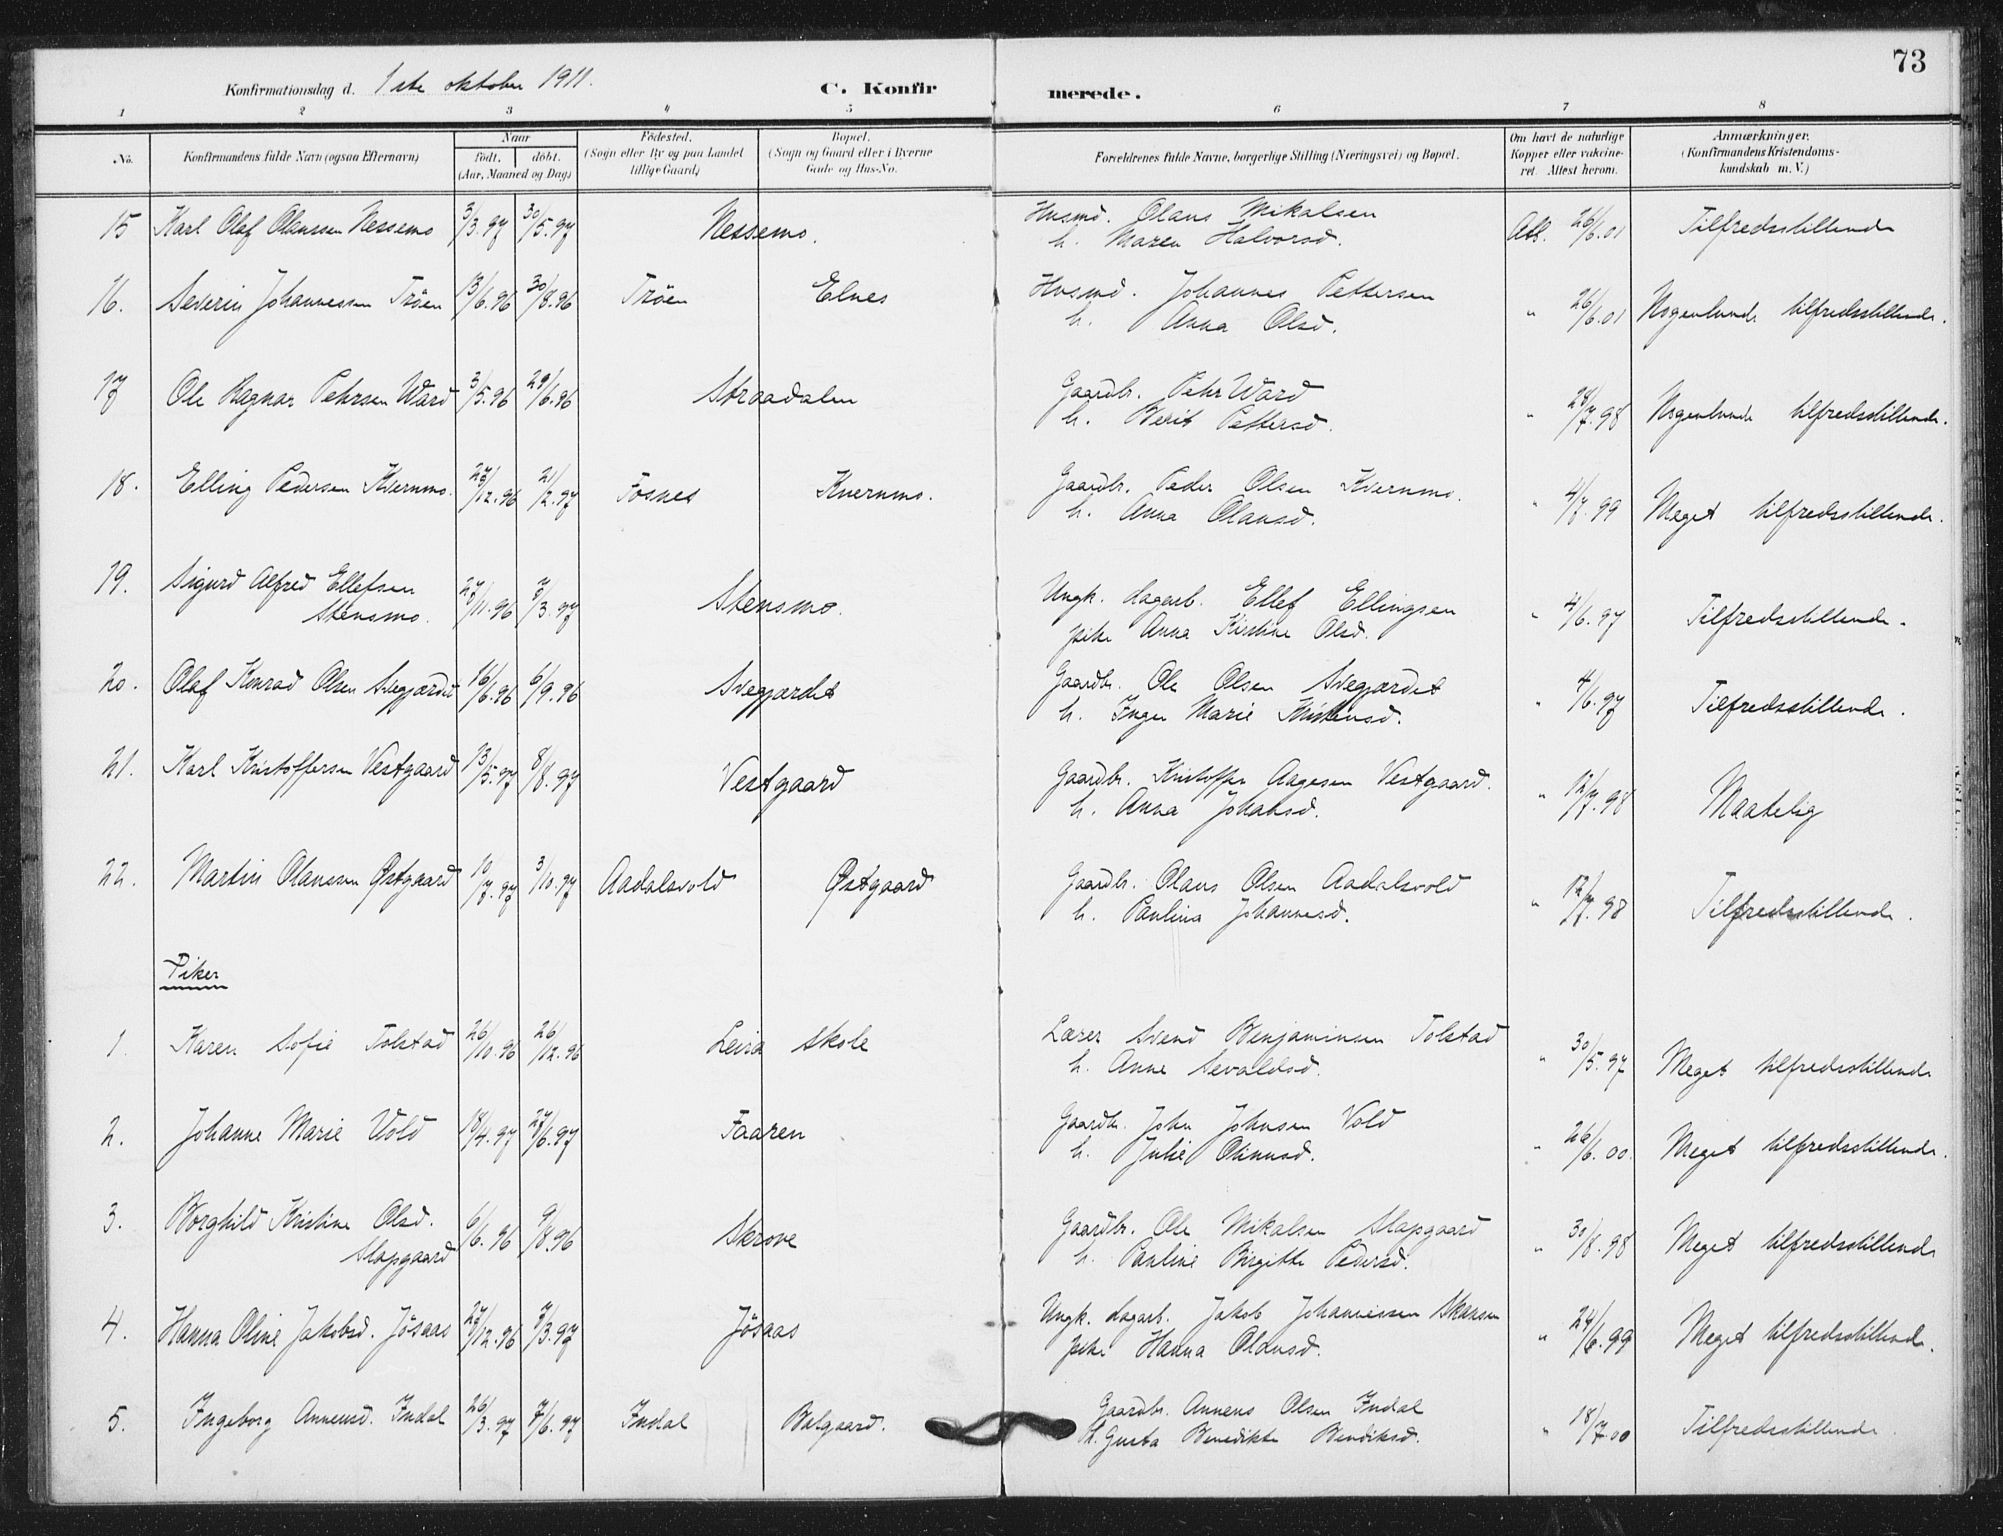 73
Konfirmationsdag d. 1ste oktober 1911. C. Konfirmerede.
1 2 3 4 5 6 7 8
No.
Konfirmandens fulde Navn (ogsaa Efternavn)
Naar
födt. döbt.
(Aar, Maaned og Dag)
Födested.
(Sogn eller By og paa Landet
tillige Gaard)
Bopæl.
(Sogn og Gaard eller i Byerne
Gade og Hus-No.
Forældrenes fulde Navne, borgerlige Stilling (Næringsvei) og Bopæl.
Om havt de naturlige
Kopper eller vakcine-
ret. Attest herom.
Anmærkninger.
(Konfirmandens Kristendoms-
kundskab m. V.)
15 Karl Olaf Olaussen Nessemo 3/3.97 30/5.97 Nessemo. Husmd. Olaus Mikalsen Att. 26/6.01 Tilfredsstillende
h. Maren Halvorsd.
16. Severin Johannessen Trøen 13/6.96 30/8.96 Trøen Elnes Husmd. Johannes Pettersen " 26/6.01 Nogenlunde tilfredsstillende.
h. Anna Olsd.
17 Ole Ragnar Pehrsen Ward 3/5.96 29/6.96 Straadalen Gaardbr. Pehr Ward " 28/7.98 Nogenlunde tilfredsstillende.
h. Berit Pettersd.
18. Elling Pedersen Kvernmo. 27/12.96 21/2.97 Fosnes Kvernmo. Gaardbr. Peder Olsen Kvernmo. " 4/7.99 Meget tilfredsstillende.
h. Anna Olausd.
19. Sigurd Alfred Ellefsen
Stensmo. 27/11.96 7/3.97 Stensmo. Ungk. dagarb. Ellef Ellingsen " 4/6.97 Tilfredsstillende.
pike Anna Kirstine Olsd.
20. Olaf Konrad Olsen Svegjærdet 16/6.96 6/9.96 Svegjærdet Gaardbr. Ole Olsen Svegjærdet " 4/6.97 Tilfredsstillende.
h. Inger Marie Kristensd.
21. Karl Kristoffersen Vestgaard 13/5.97 8/8.97 Vestgaard Gaardbr. Kristoffer Aagesen Vestgaard. " 12/7.98 Maatelig
h. Anna Johansd.
22. Martin Olaussen Østgaard 10/7.97 3/10.97 Aadalsvold Østgaard Gaardbr. Olaus Olsen Aadalsvold " 12/7.98 Tilfredsstillende.
h. Paulina Johannesd.
Piker
1. Karen Sofie Tolstad 26/10.96 26/12.96 Leira skole Lærer Svend Benjaminsen Tolstad " 30/5.97 Meget tilfredsstillende
h. Anne Sevaldsd.
2. Johanne Marie Vold 18/4.97 27/6.97 Faaren Gaardbr. John Johnsen Vold " 26/6.00. Meget tilfredsstillende.
h. Julie
3. Borghild Kristine Olsd.
Slapgaard 6/6.96 9/8.96 Skrove Gaardbr. Ole Mikalsen Slapgaard " 30/8.98 Meget tilfredsstillende
h. Pauline Birgitte Pedersd.
4. Hanna Oline Jakobsd. Jøsaas 27/12.96 7/3.97 Jøsaas Ungk. dagarb. Jakob Johannessen " 24/6.99 Meget tilfredsstillende.
pike Hanna Olausd.
5. Ingeborg Annensd. Indal 26/3.97 7/6.97 Indal Balgaard. Gaardbr. Annens Olsen Indal " 18/7.00 Tilfredsstillende.
h. Gusta Benedikte Bendiksd.